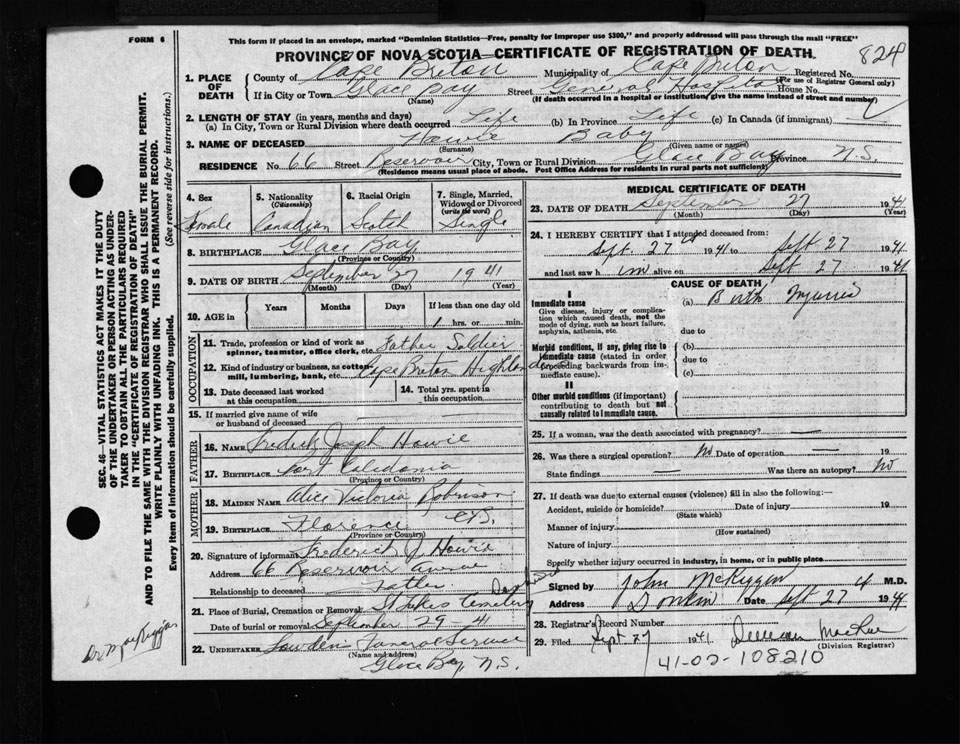 FORM 6
This form if placed in an envelope, marked "Dominion Statistics—Free, penalty for improper use $300," and properly addressed will pass through the mail "FREE"
PROVINCE OF NOVA SCOTIA—CERTIFICATE OF REGISTRATION OF DEATH.
824
1. PLACE OF DEATH County of Cape Breton Municipality of Cape Breton Registered No. (For use of Registrar General only)
If in City or Town Glace Bay (Name) Street General Hospital House No.
(If death occurred in a hospital or institution, give the name instead of street and number)
2. LENGTH OF STAY (in years, months and days)
(a) In City, Town or Rural Division where death occurred Life (b) In Province Life (c) In Canada (if immigrant)
3. NAME OF DECEASED Howie (Surname) Baby (Given name or names)
RESIDENCE No. 66 Street Reservoir City, Town or Rural Division Glace Bay Province N.S.
(Residence means usual place of abode. Post Office Address for residents in rural parts not sufficient)
4. Sex Female
5. Nationality (Citizenship) Canadian
6. Racial Origin Scotch
7. Single, Married, Widowed or Divorced (write the word) Single
8. BIRTHPLACE Glace Bay (Province or Country)
9. DATE OF BIRTH September 27 1941
(Month) (Day) (Year)
10. AGE in Years Months Days If less than one day old 1 hrs. or min.
OCCUPATION
11. Trade, profession or kind of work as spinner, teamster, office clerk, etc. Father Soldier
12. Kind of industry or business, as cotton mill, lumbering, bank, etc. Cape Breton Highlanders
13. Date deceased last worked at this occupation
14. Total yrs. spent in this occupation
15. If married give name of wife or husband of deceased
FATHER
16. NAME Fredrick Joseph Howie
17. BIRTHPLACE Port Caledonia
(Province or Country)
MOTHER
18. MAIDEN NAME Alice Victoria Robinson
19. BIRTHPLACE Florence C.B.
(Province or Country)
20. Signature of informant Frederick J Howie
Address 66 Reservoir Avenue
Relationship to deceased Father
21. Place of Burial, Cremation or Removal St Lukes Cemetery
Date of burial or removal September 29-41
22. UNDERTAKER Funeral Service
(Name and address)
Glace Bay, N.S.
MEDICAL CERTIFICATE OF DEATH
23. DATE OF DEATH September 27 1941
(Month) (Day) (Year)
24. I HEREBY CERTIFY that I attended deceased from:
Sept. 27 1941 to Sept 27 1941
and last saw h im alive on Sept 27 1941
CAUSE OF DEATH
I
Immediate cause
Give disease, injury or complication which caused death, not the mode of dying, such as heart failure, asphyxia, asthenia, etc.
(a) Birth Injuries
due to
Morbid conditions, if any, giving rise to immediate cause (stated in order proceeding backwards from immediate cause).
(b)
due to
(c)
II
Other morbid conditions (if important) contributing to death but not causally related to immediate cause.
25. If a woman, was the death associated with pregnancy? —
26. Was there a surgical operation? No Date of operation — 19
State findings — Was there an autopsy? No
27. If death was due to external causes (violence) fill in also the following:—
Accident, suicide or homicide? Date of injury 19
(State which)
Manner of injury
(How sustained)
Nature of injury
Specify whether injury occurred in industry, in home, or in public place
Signed by John McKiggan M.D.
Address Donkin Date Sept 27 1941
28. Registrar's Record Number
29. Filed Sept 27 1941
(Division Registrar)
41-02-108210
SEC. 46—VITAL STATISTICS ACT MAKES IT THE DUTY
OF THE UNDERTAKER OR PERSON ACTING AS UNDERTAKER TO OBTAIN ALL THE PARTICULARS REQUIRED
IN THE "CERTIFICATE OF REGISTRATION OF DEATH"
AND TO FILE THE SAME WITH THE DIVISION REGISTRAR WHO SHALL ISSUE THE BURIAL PERMIT.
WRITE PLAINLY WITH UNFADING INK. THIS IS A PERMANENT RECORD.
Every item of information should be carefully supplied. (See reverse side for instructions.)